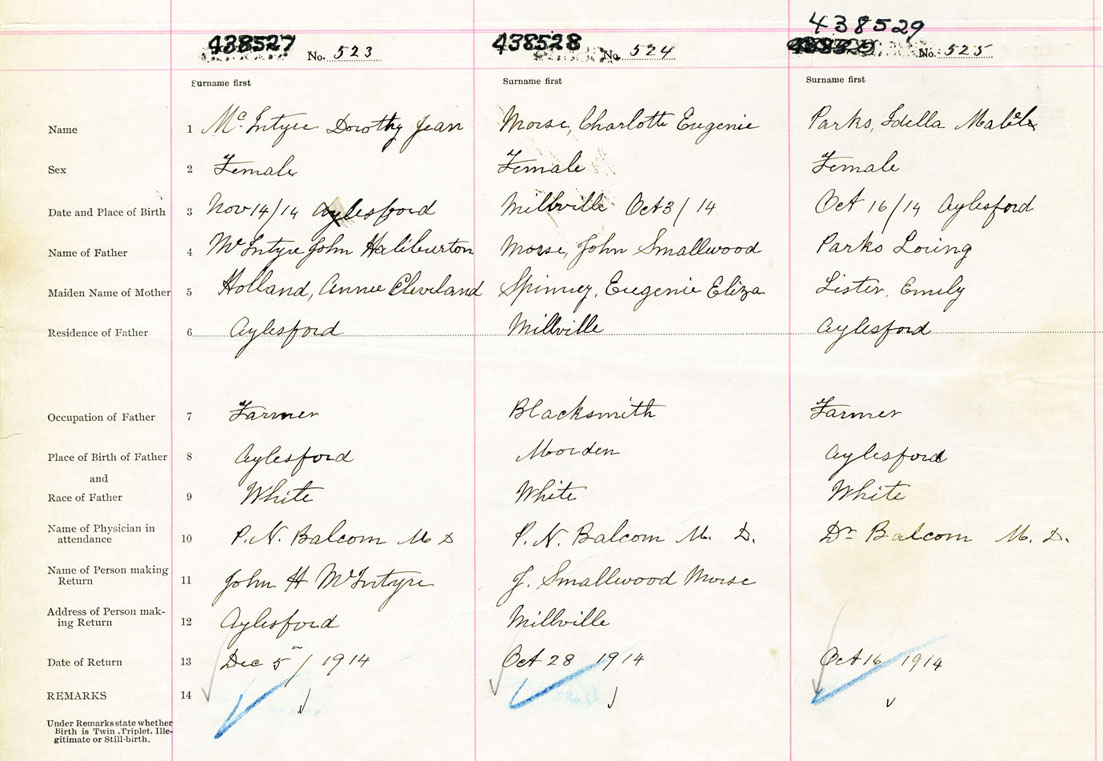 438529
438527 No. 523 438528 No. 524 No. 525
Surname first Surname first Surname first
Name 1 McIntyre Dorothy Jean Morse, Charlotte Eugenie Parks, Idella Mable
Sex 2 Female Female Female
Date and Place of Birth 3 Nov 14/14 Aylesford Millville Oct 3/14 Oct 16/14 Aylesford
Name of Father 4 McIntyre John Haliburton Morse, John Smallwood Parks Loring
Maiden Name of Mother 5 Holland, Annie Cleveland Spinney, Eugenie Eliza Lister, Emily
Residence of Father 6 Aylesford Millville Aylesford
Occupation of Father 7 Farmer Blacksmith Farmer
Place of Birth of Father 8 Aylesford Morden Aylesford
and
Race of Father 9 White White White
Name of Physician in
attendance 10 P. N. Balcom M D P. N. Balcom M. D. Dr Balcom M. D.
Name of Person making
Return 11 John H McIntyre J. Smallwood Morse
Address of Person mak-
ing Return 12 Aylesford Millville
Date of Return 13 Dec 5th/1914 Oct 28 1914 Oct 16 1914
REMARKS 14
Under Remarks state whether
Birth is Twin, Triplet, Ille-
gitimate or Still-birth.